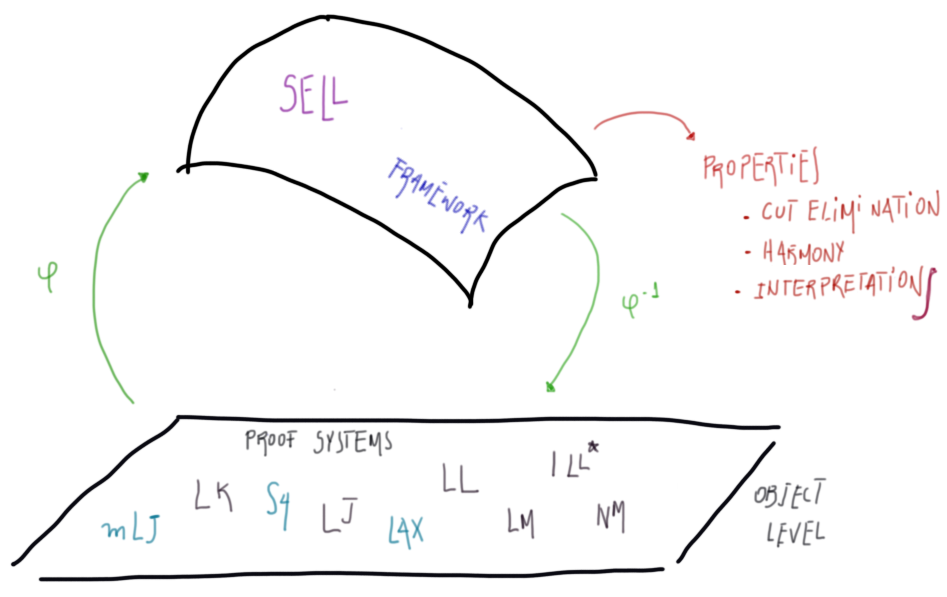 SELL
FRAMEWORK
PROPERTIES
- CUT ELIMINATION
- HARMONY
- INTERPRETATIONS
φ
φ⁻¹
PROOF SYSTEMS
mLJ LK S4 LJ LAX LL LM ILL* NM
OBJECT
LEVEL